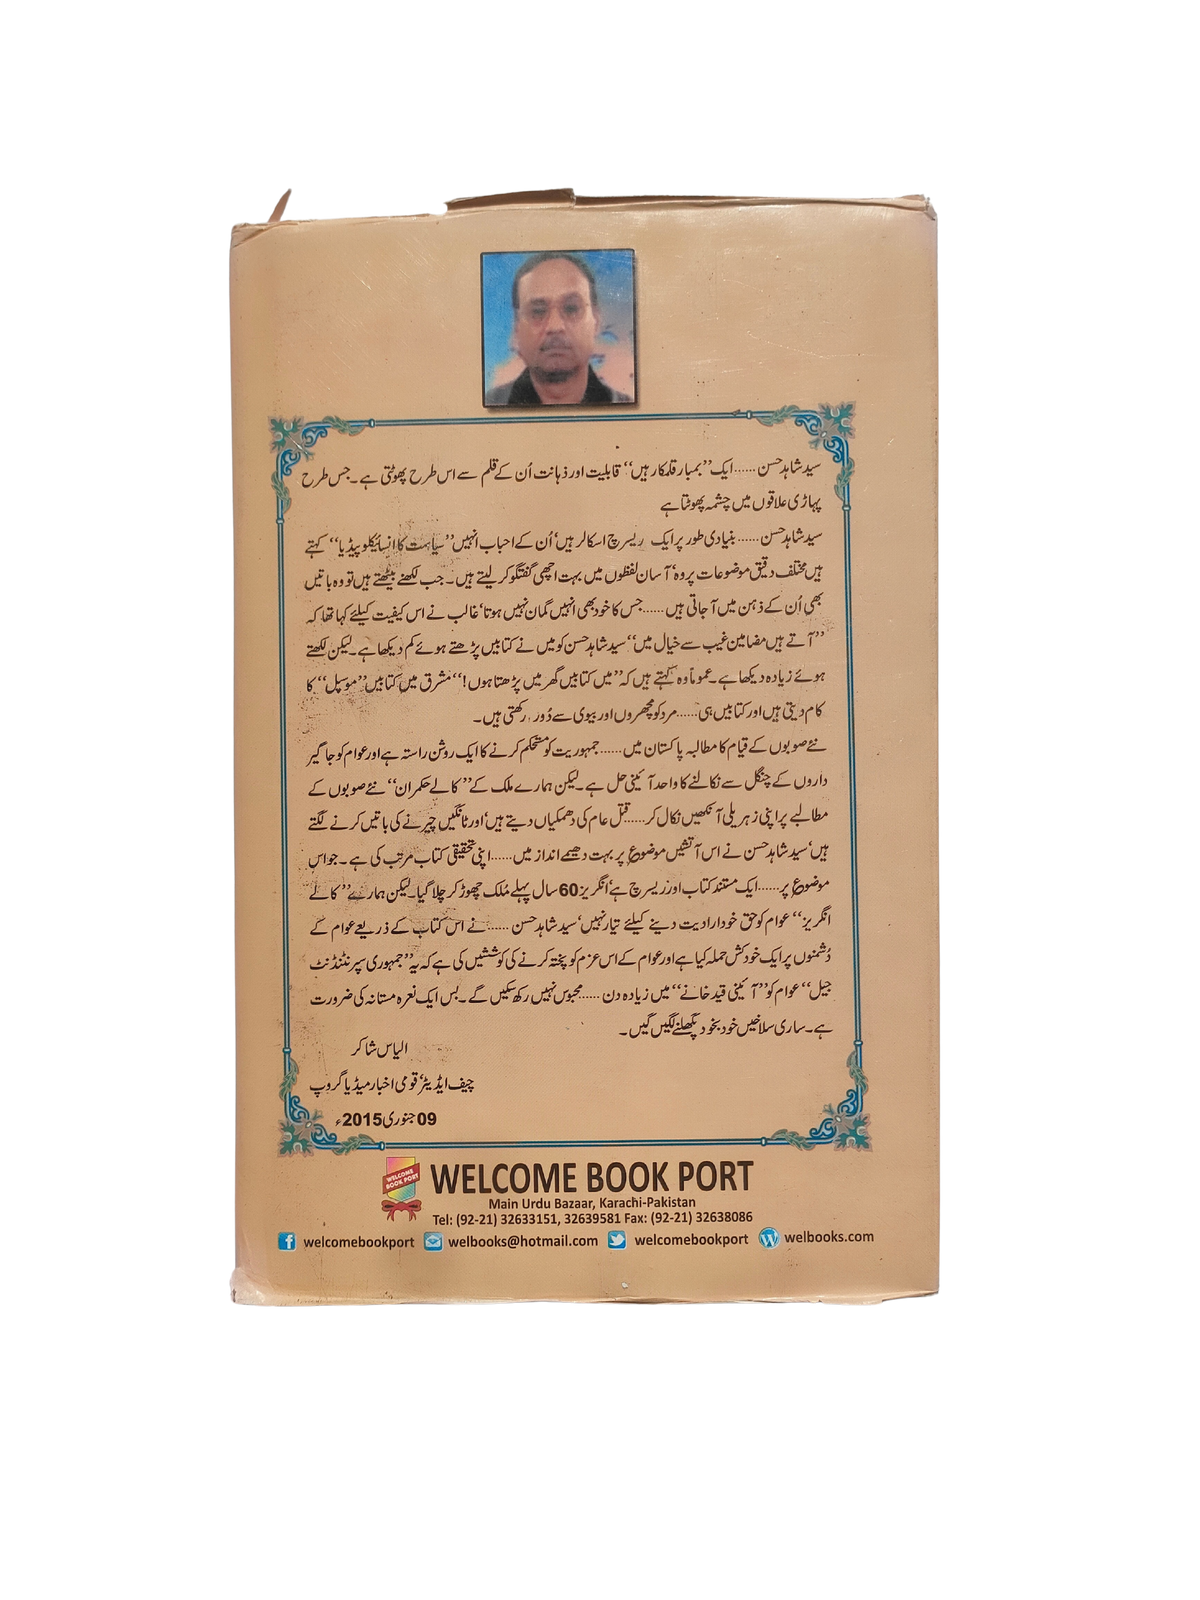 سید شاہد حسن ...... ایک ”بمبار قلمکار ہیں“ قابلیت اور ذہانت اُن کے قلم سے اس طرح پھوٹتی ہے۔ جس طرح
پہاڑی علاقوں میں چشمہ پھوٹتا ہے
سید شاہد حسن ...... بنیادی طور پر ایک ریسرچ اسکالر ہیں‘ اُن کے احباب انہیں ”سیاست کا انسائیکلو پیڈیا“ کہتے
ہیں مختلف دقیق موضوعات پر وہ‘ آسان لفظوں میں بہت اچھی گفتگو کر لیتے ہیں۔ جب لکھنے بیٹھتے ہیں تو وہ باتیں
بھی اُن کے ذہن میں آجاتی ہیں ...... جس کا خود بھی انہیں گمان نہیں ہوتا‘ غالب نے اس کیفیت کیلئے کہا تھا کہ
”آتے ہیں مضامین غیب سے خیال میں“ سید شاہد حسن کو میں نے کتابیں پڑھتے ہوئے کم دیکھا ہے۔ لیکن لکھتے
ہوئے زیادہ دیکھا ہے۔ عموماً وہ کہتے ہیں کہ ”میں کتابیں گھر میں پڑھتا ہوں!“ مشرق میں کتابیں ”موسپل“ کا
کام دیتی ہیں اور کتابیں ہی ...... مرد کو مچھروں اور بیوی سے دُور رکھتی ہیں۔
نئے صوبوں کے قیام کا مطالبہ پاکستان میں ...... جمہوریت کو مستحکم کرنے کا ایک روشن راستہ ہے اور عوام کو جاگیر
داروں کے چنگل سے نکالنے کا واحد آئینی حل ہے۔ لیکن ہمارے ملک کے ”کالے حکمران“ نئے صوبوں کے
مطالبے پر اپنی زہریلی آنکھیں نکال کر ...... قتل عام کی دھمکیاں دیتے ہیں‘ اور ٹانگیں چیرنے کی باتیں کرنے لگتے
ہیں‘ سید شاہد حسن نے اس آتشیں موضوع پر بہت دھیمے انداز میں ...... اپنی تحقیقی کتاب مرتب کی ہے۔ جو اس
موضوع پر ...... ایک مستند کتاب اور ریسرچ ہے‘ انگریز 60 سال پہلے مُلک چھوڑ کر چلا گیا۔ لیکن ہمارے ”کالے
انگریز“ عوام کو حق خودارادیت دینے کیلئے تیار نہیں‘ سید شاہد حسن ...... نے اس کتاب کے ذریعے عوام کے
دُشمنوں پر ایک خودکش حملہ کیا ہے اور عوام کے اس عزم کو پختہ کرنے کی کوششیں کی ہے کہ یہ ”جمہوری سپرنٹنڈنٹ
جیل“ عوام کو ”آئینی قید خانے“ میں زیادہ دن ...... محبوس نہیں رکھ سکیں گے۔ بس ایک نعرہ مستانہ کی ضرورت
ہے۔ ساری سلاخیں خود بخود پگھلنے لگیں گیں۔
الیاس شاکر
چیف ایڈیٹر‘ قومی اخبار میڈیا گروپ
09 جنوری 2015ء
WELCOME BOOK PORT
WELCOME BOOK PORT
Main Urdu Bazaar, Karachi-Pakistan
Tel: (92-21) 32633151, 32639581 Fax: (92-21) 32638086
welcomebookport welbooks@hotmail.com welcomebookport welbooks.com